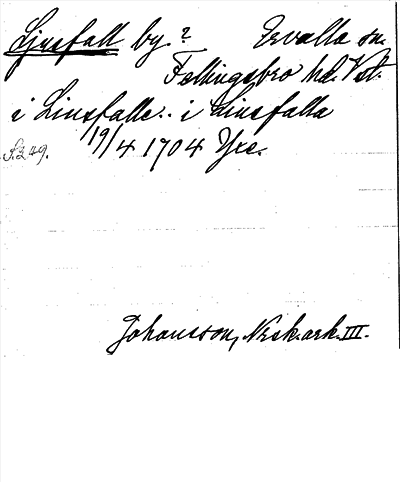 Ljusfall by? Ervalla sn.
Fellingsbro hd. Vstl.
i Liusfalle.. i Liusfalla
S. 249. 19/4 1704 Yxe.
Johansson, Norsk. ark. III.